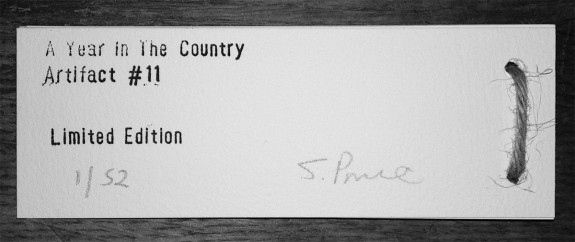 A Year In The Country
Artifact #11
Limited Edition
1/52
S. Prince